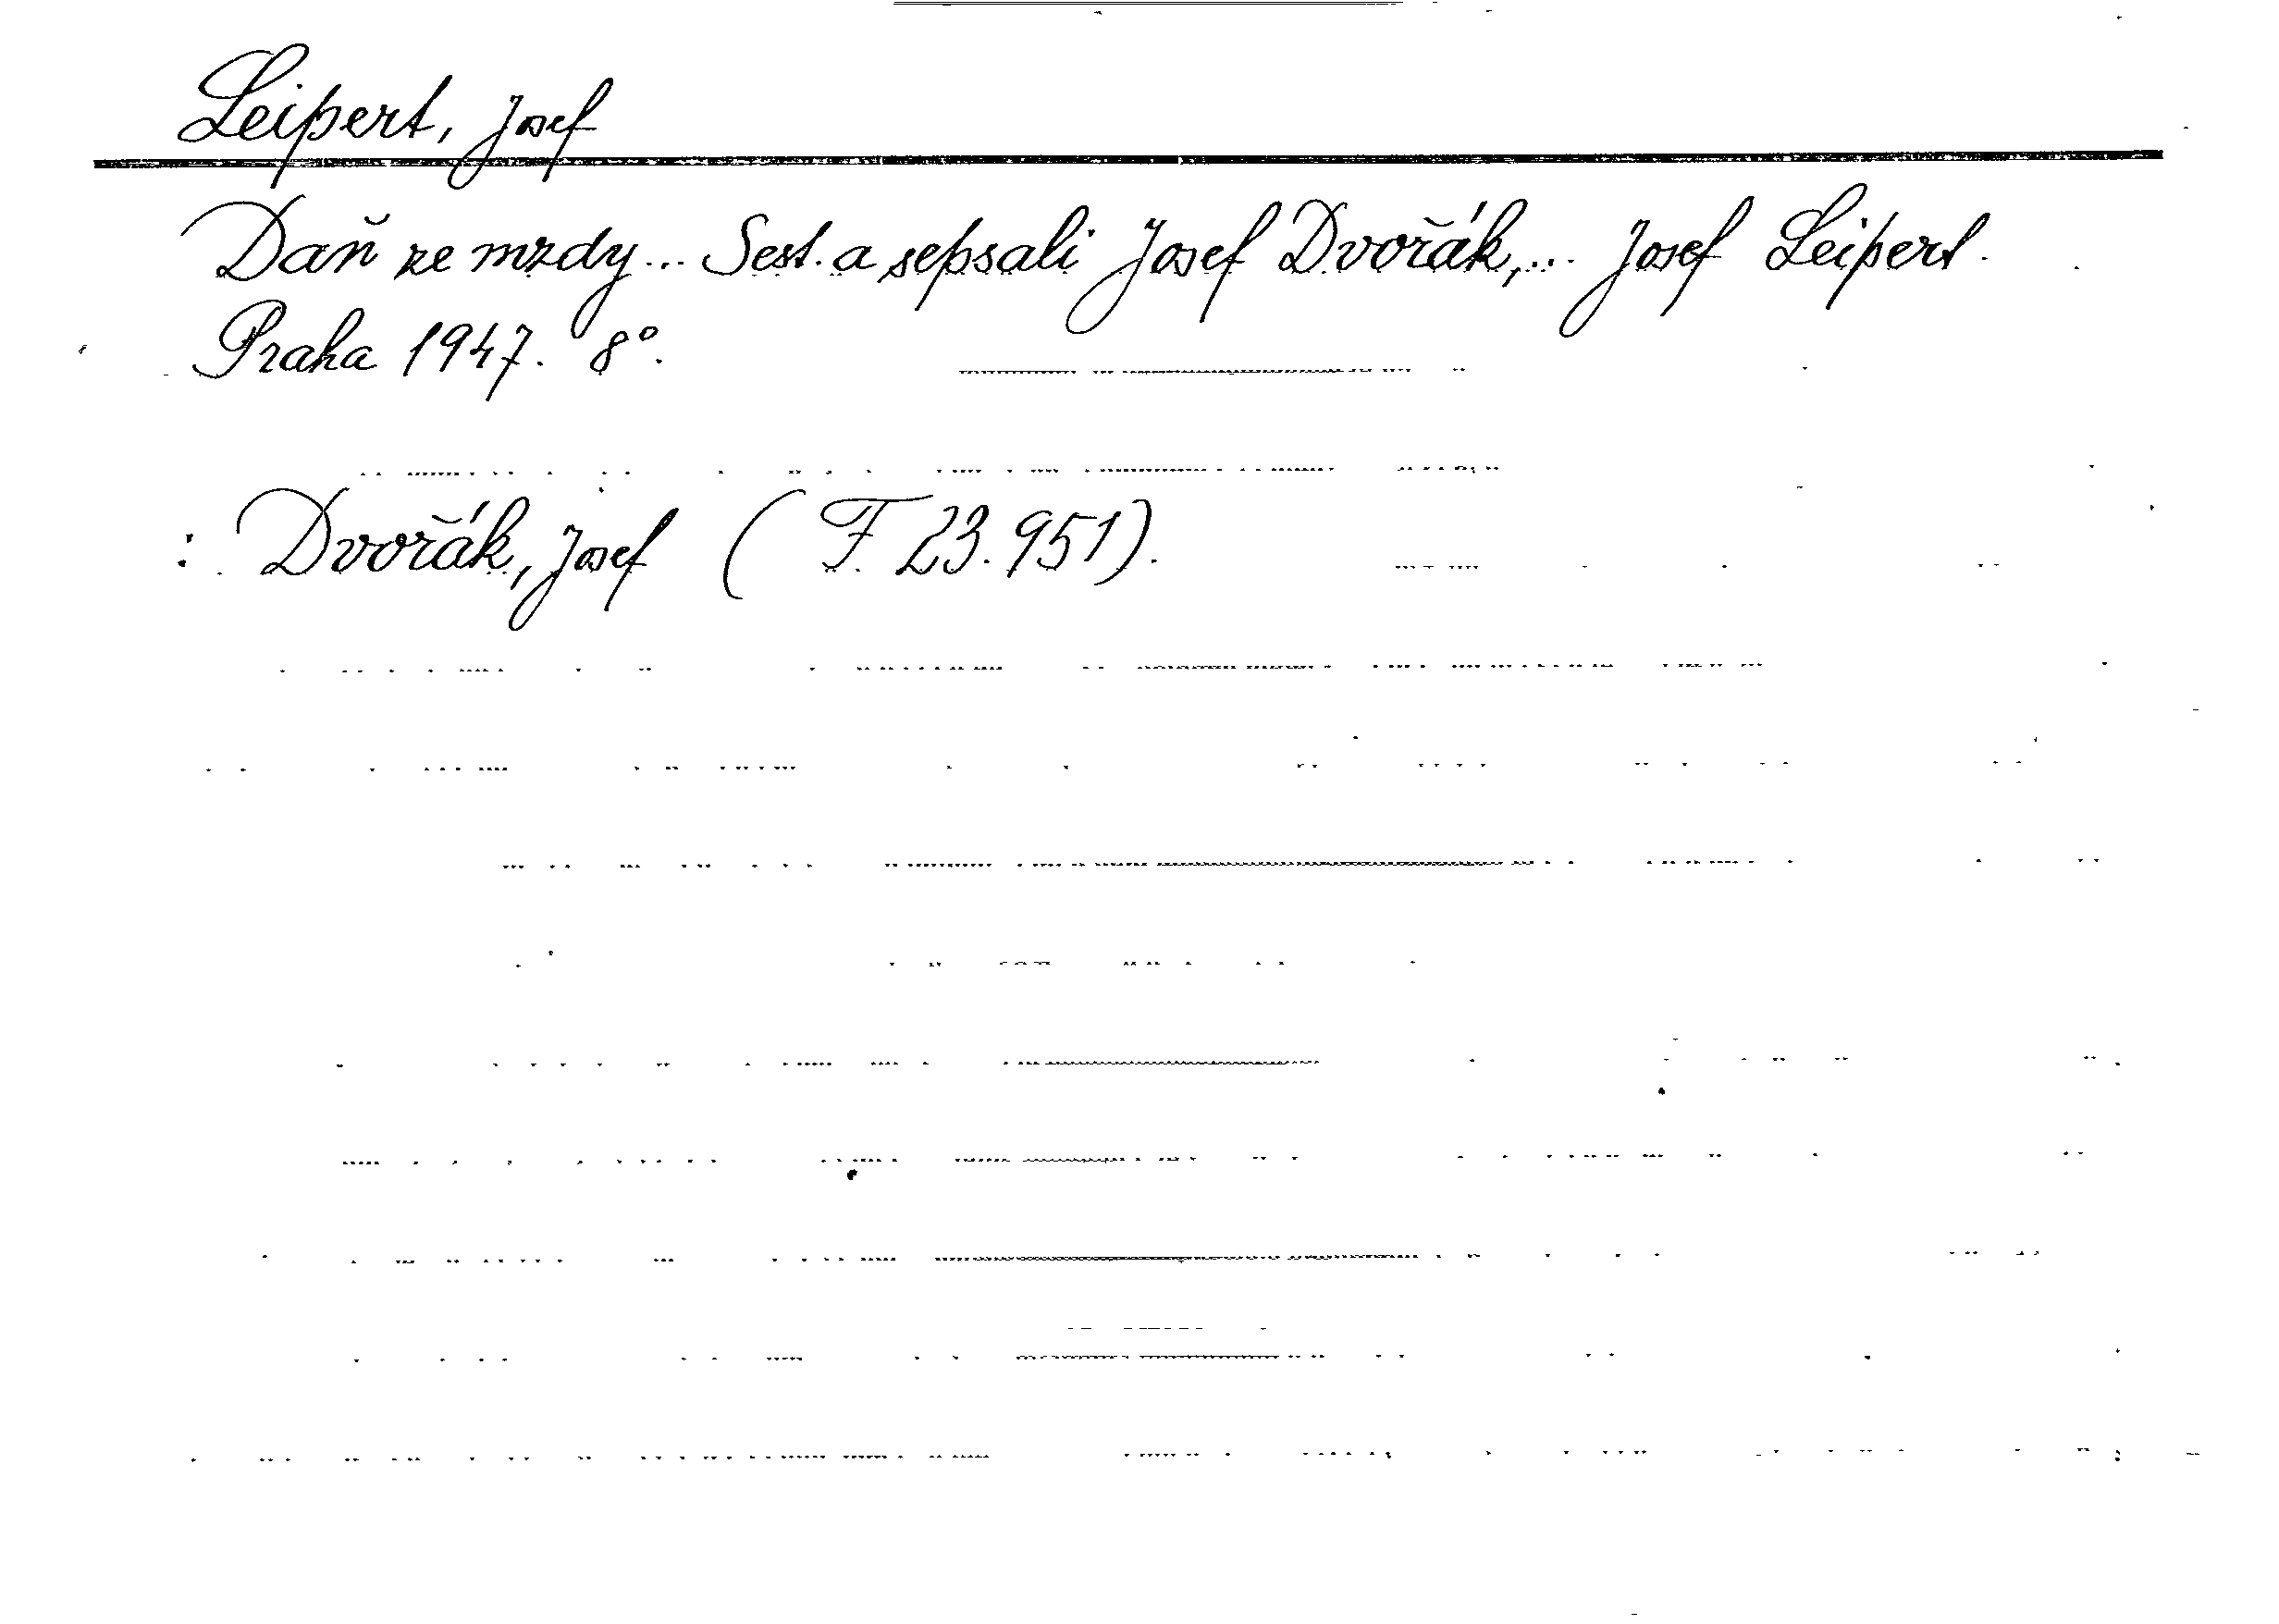 Leipert, Josef
Daň ze mzdy... Sest. a sepsali Josef Dvořák,... Josef Leipert.
Praha 1947. 8°.
: Dvořák, Josef (F 23.951).